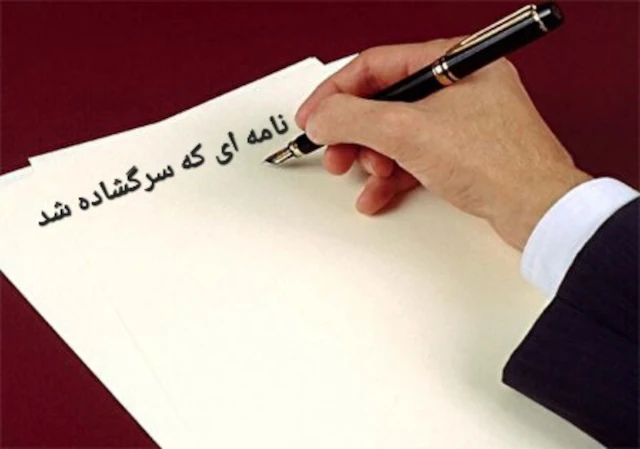 نامه ای که سرگشاده شد